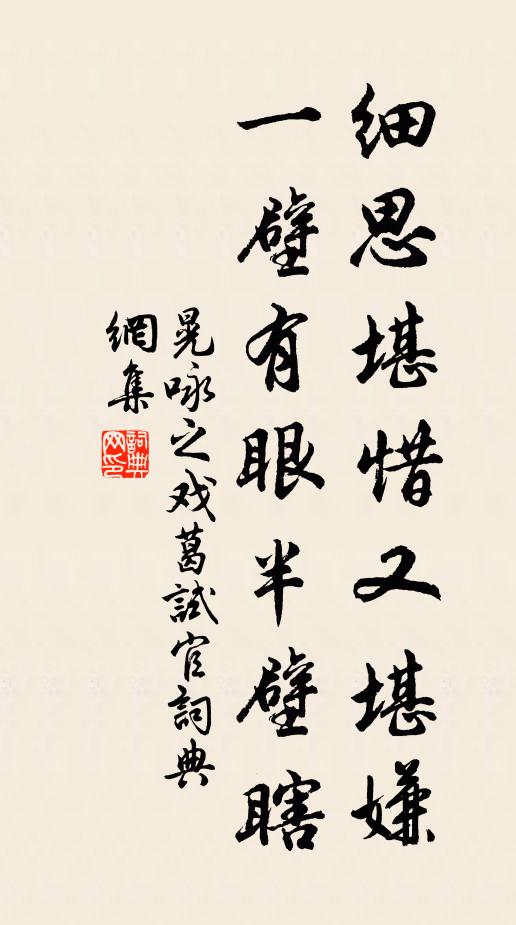 细思堪惜又堪嫌
一壁有眼半壁瞎
晃咏之戏葛試官詞典
網集
詞典
网印